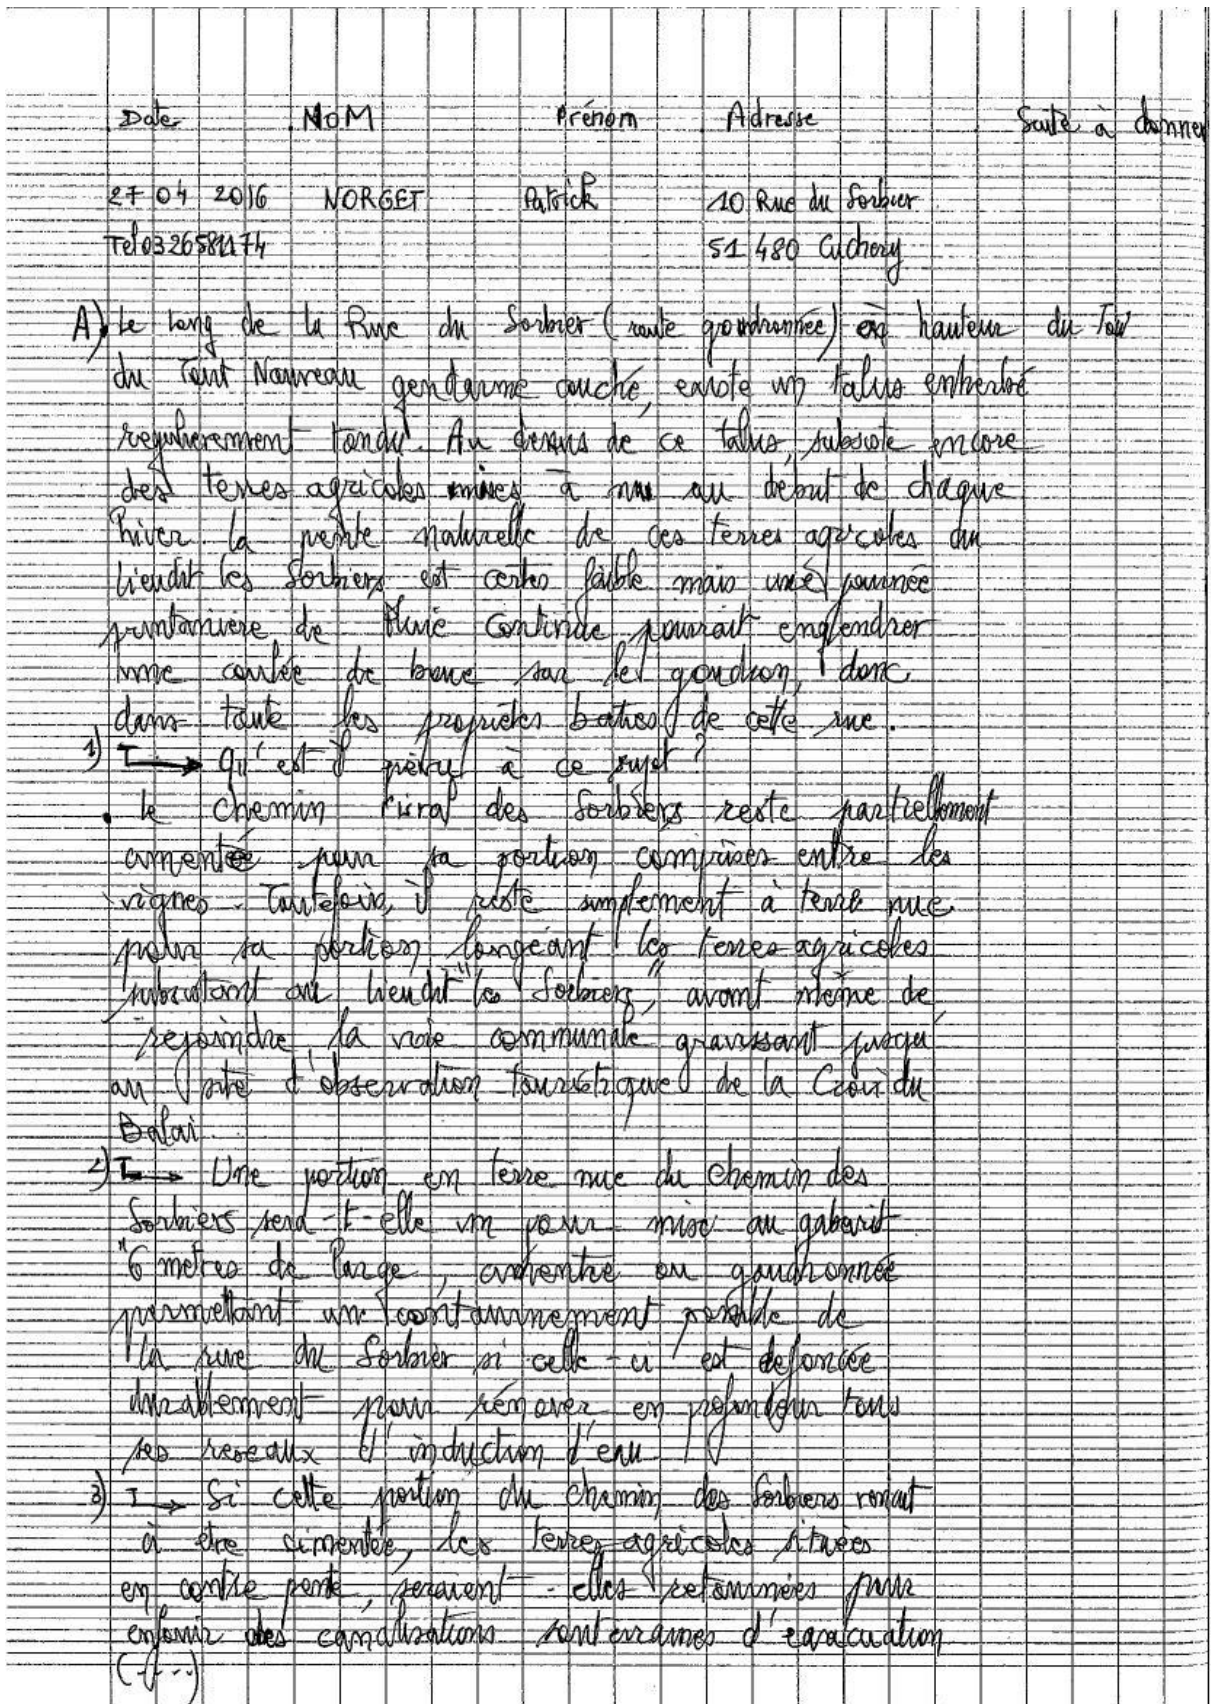 Date NOM Prénom Adresse Suite à donner
27 04 2016 NORGET Patrick 10 Rue du Sorbier
Tel 0326581174 51 480 Cuchery
A) Le long de la Rue du Sorbier (route goudronnée) en hauteur du
du Tout Nouveau gendarme couché, existe un talus enherbé
regulierement tondu. Au dessus de ce talus, subsiste encore
des terres agricoles mises à nu au début de chaque
hiver la pente naturelle de ces terres agricoles du
lieudit les Sorbiers est certes faible mais une journée
printaniere de Pluie Continue pourrait englendrer
une coulée de boue sur le goudron, donc
dans toute les propriétés baties de cette rue.
1) → Qu'est il prévu à ce sujet ?
. le chemin rural des Sorbiers reste partiellement
cimentée pour sa portion comprises entre les
vignes. Toutefois, il reste simplement à terre nue
pour sa portion longeant les terres agricoles
subsistant au lieudit "les Sorbiers", avant même de
rejoindre la voie communale gravissant jusqu'
au site d'observation touristique de la Croix du
Balai.
2) → Une portion en terre nue du chemin des
Sorbiers sera-t-elle un jour mise au gabarit
"6 metres de large, cimentée ou goudronnée
permettant un contournement possible de
la rue du Sorbier si celle-ci est defoncée
durablement pour rénover en profondeur tous
ses reseaux d'induction d'eau
3) → Si cette portion du chemin des Sorbiers venait
à être cimentée, les terres agricoles situées
en contre pente, seraient-elles retournées pour
enfouir des canalisations souterraines d'évacuation
(-/---)